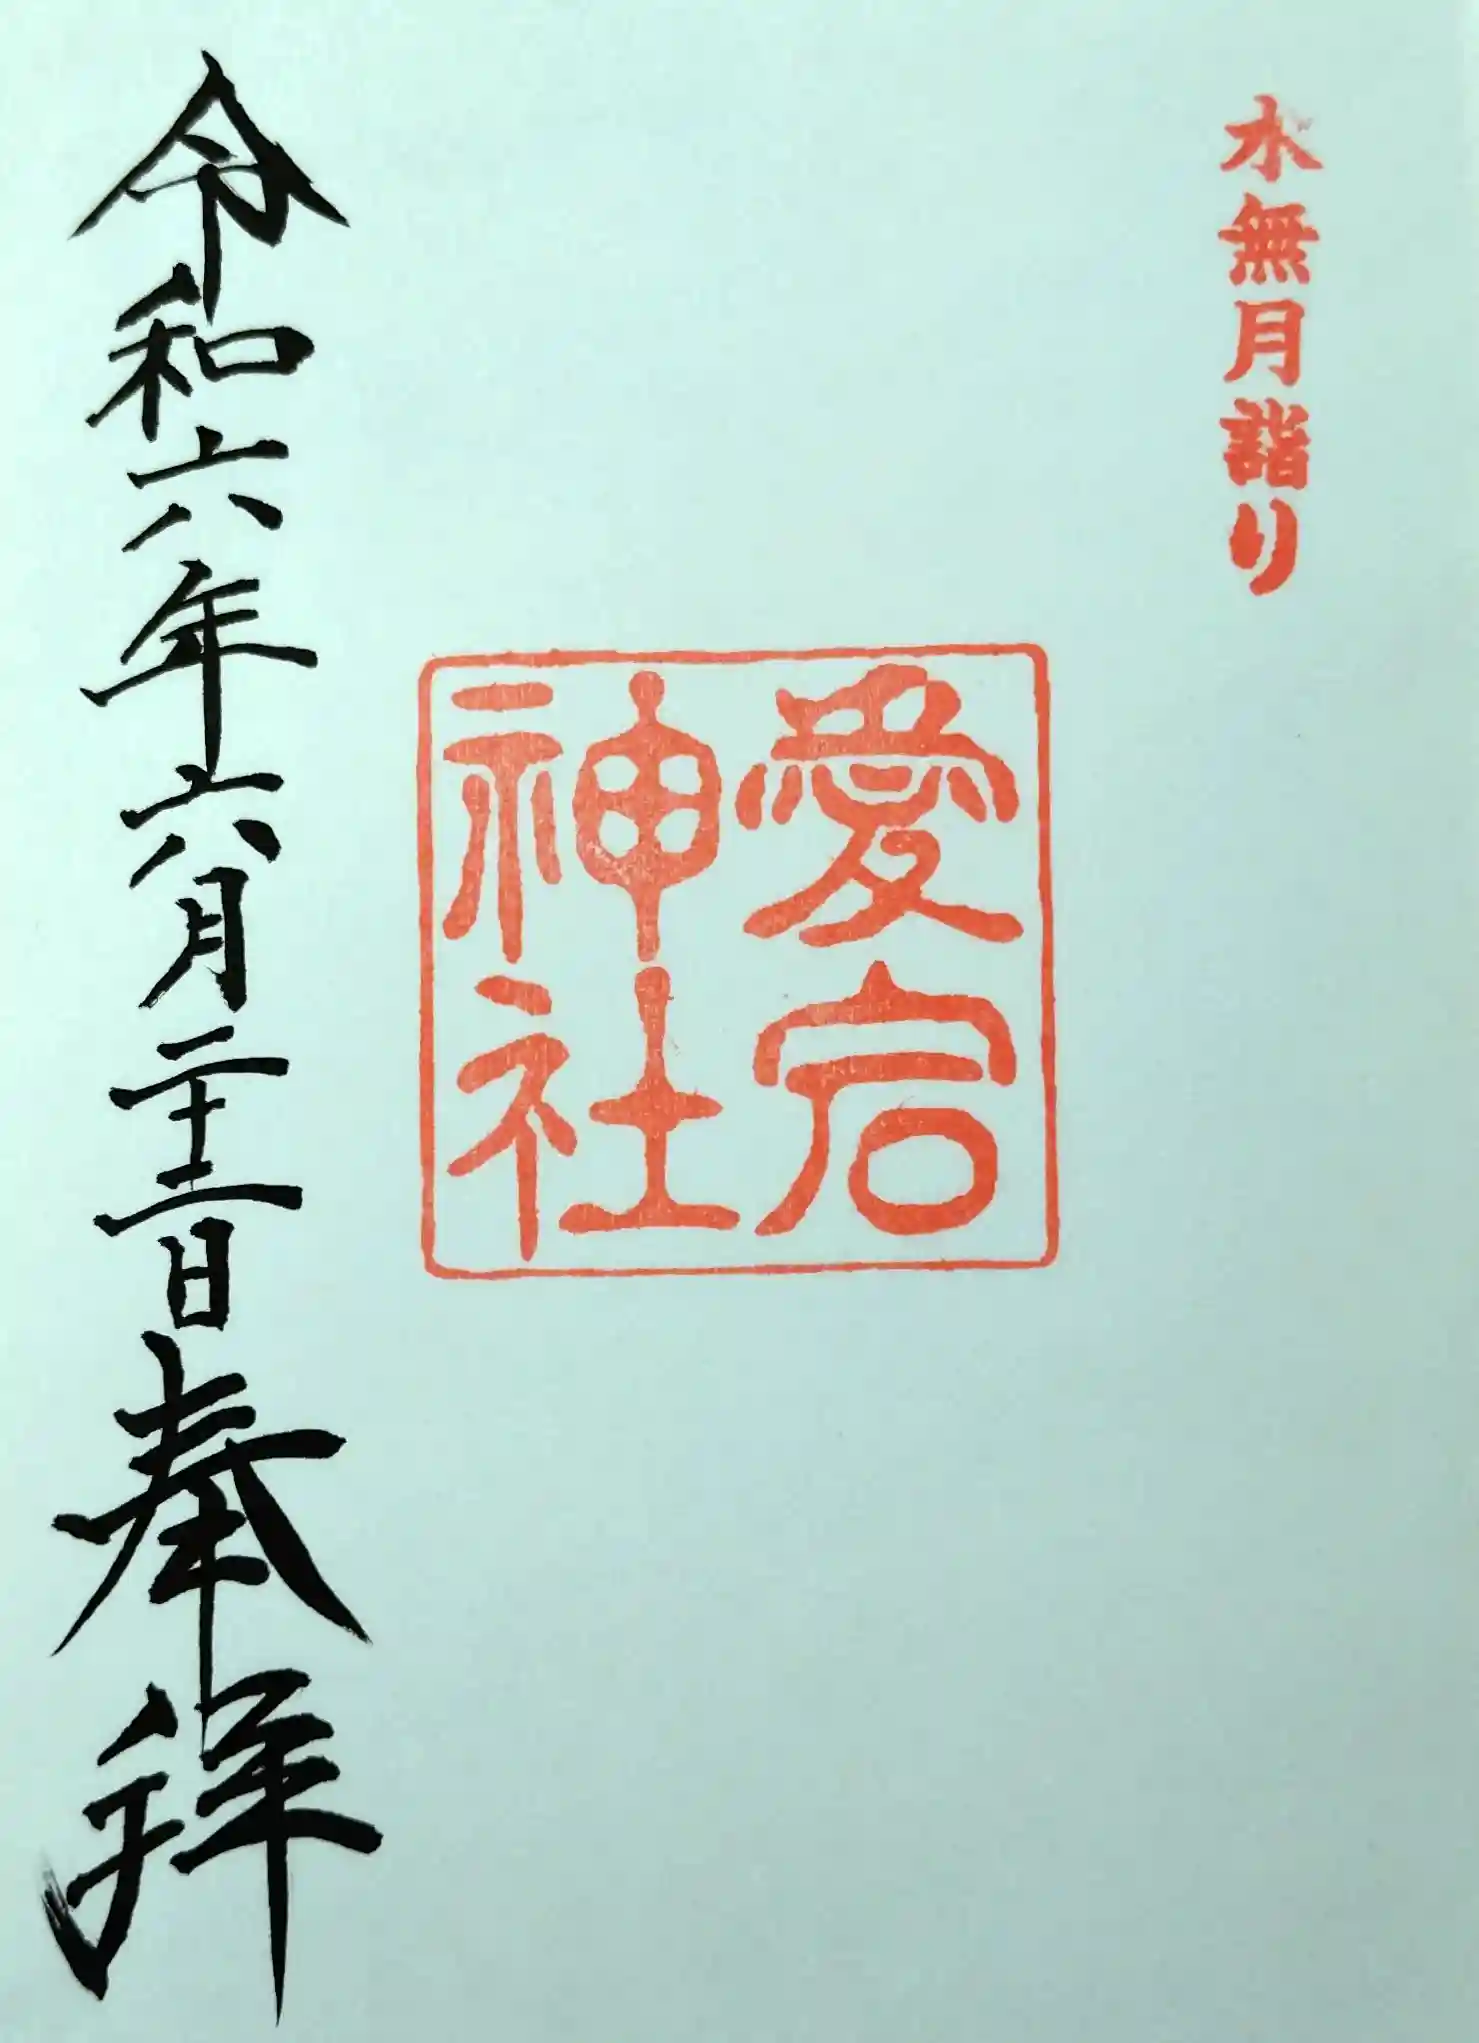 水無月詣り
愛宕
神社
令和六年六月二十二日奉拝